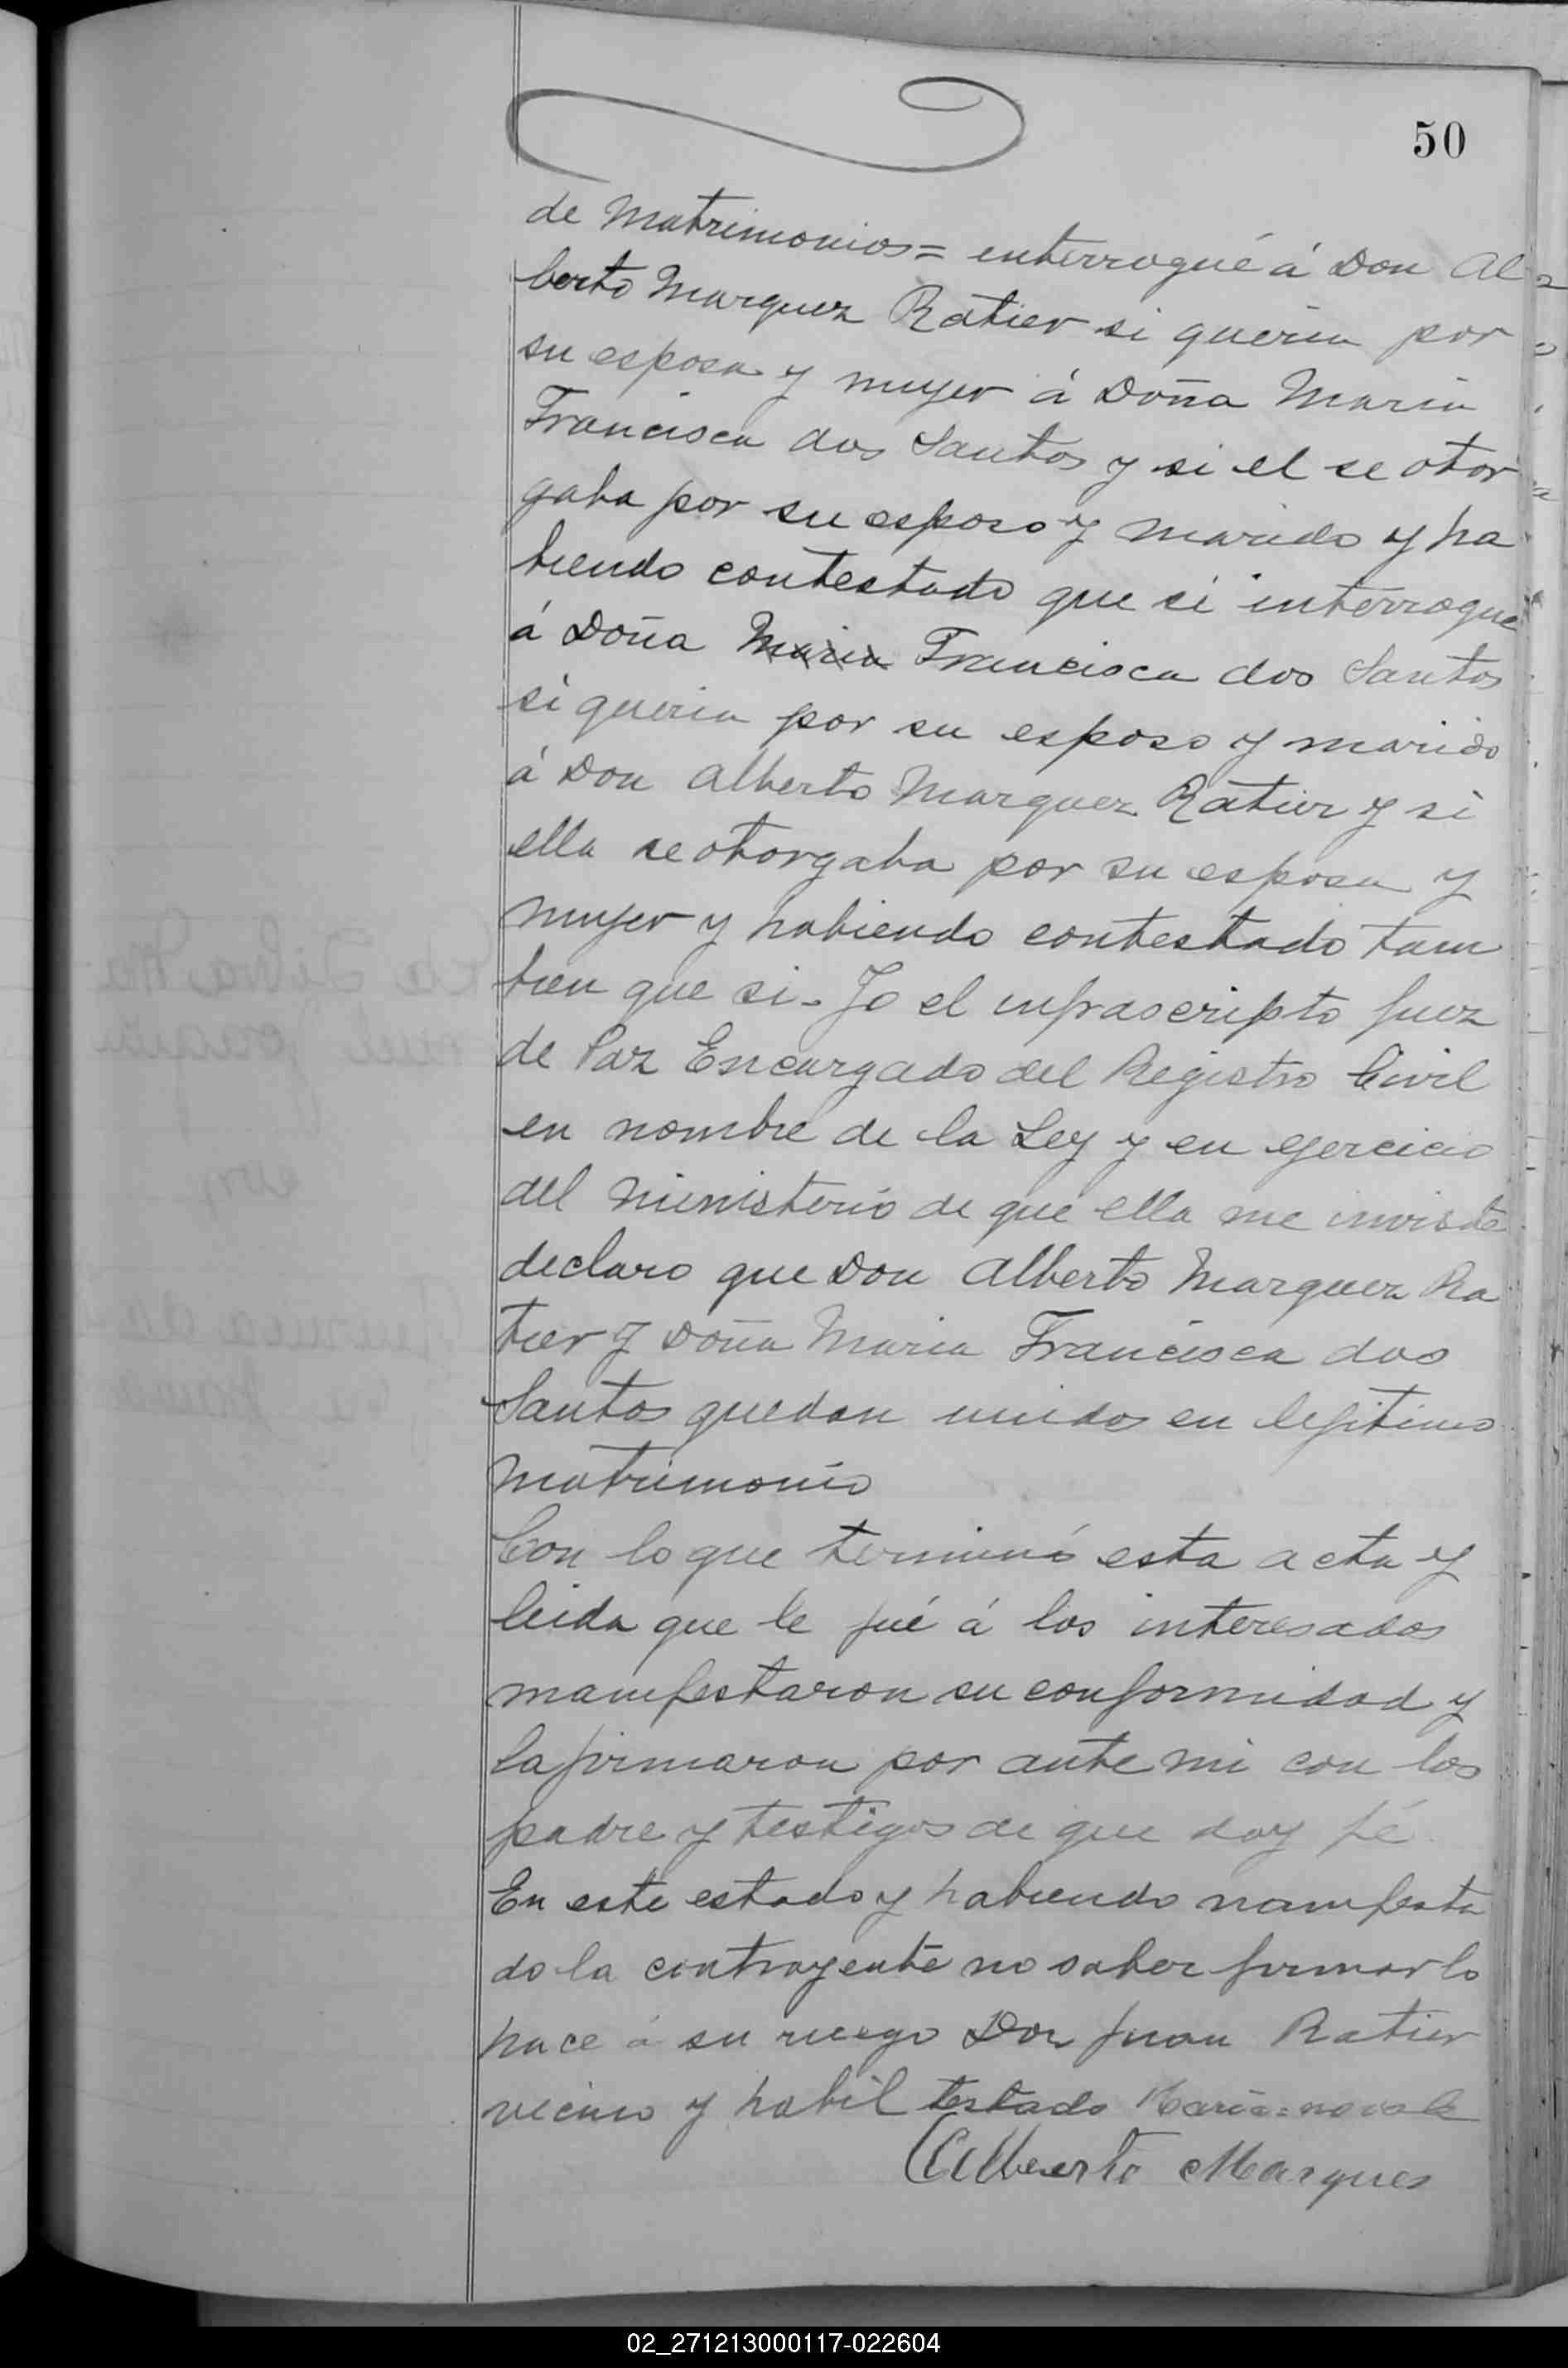 50
de Matrimonios = enterrogué á Don Al
berto Marquez Ratier si queria por
su esposa y muger á Doña Maria
Francisca dos Santos y si el se otor
gaba por su esposo y marido y ha
biendo contestado que si interrogue
á Doña Maria Francisca dos Santos
si queria por su esposo y marido
á Don Alberto Marquez Ratier y si
ella se otorgaba por su esposa y
muger y habiendo contestado tam
bien que si - Yo el infrascripto Juez
de Paz Encargado del Registro Civil
en nombre de la Ley y en egercicio
del ministerio de que ella me inviste
declaro que Don Alberto Marquez Ra
tier y Doña Maria Francisca dos
Santos quedan unidos en legitimo
matrimonio
Con lo que terminó esta acta y
leida que le fué á los interesados
manifestaron su conformidad y
la firmaron por ante mi con los
padre y testigos de que doy fé.
En este estado y habiendo manifesta
do la contrayente no saber firmar lo
hace á su ruego Don Juan Ratier
vecino y habil testado Maria = no vale
Alberto Marques
02_271213000117-022604